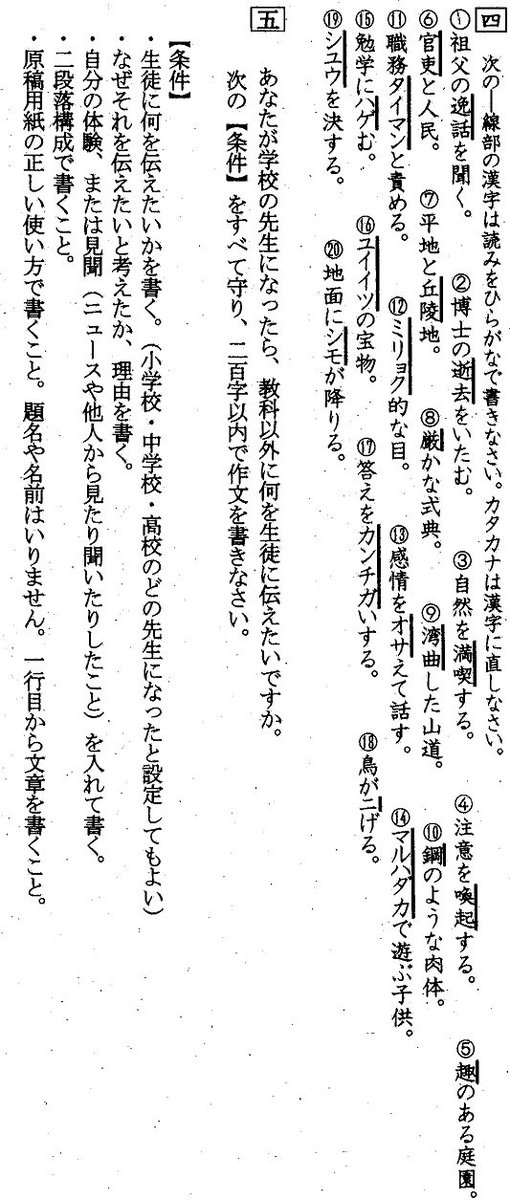 四 次の―線部の漢字は読みをひらがなで書きなさい。カタカナは漢字に直しなさい。
①祖父の逸話を聞く。 ②博士の逝去をいたむ。 ③自然を満喫する。 ④注意を喚起する。 ⑤趣のある庭園。
⑥官吏と人民。 ⑦平地と丘陵地。 ⑧厳かな式典。 ⑨湾曲した山道。 ⑩鋼のような肉体。
⑪職務タイマンと責める。 ⑫ミリョク的な目。 ⑬感情をオサえて話す。 ⑭マルハダカで遊ぶ子供。
⑮勉学にハゲむ。 ⑯ユイイツの宝物。 ⑰答えをカンチガいする。 ⑱鳥がニげる。
⑲シユウを決する。 ⑳地面にシモが降りる。
五 あなたが学校の先生になったら、教科以外に何を生徒に伝えたいですか。
次の【条件】をすべて守り、二百字以内で作文を書きなさい。
【条件】
・生徒に何を伝えたいかを書く。（小学校・中学校・高校のどの先生になったと設定してもよい）
・なぜそれを伝えたいと考えたか、理由を書く。
・自分の体験、または見聞（ニュースや他人から見たり聞いたりしたこと）を入れて書く。
・二段落構成で書くこと。
・原稿用紙の正しい使い方で書くこと。題名や名前はいりません。一行目から文章を書くこと。